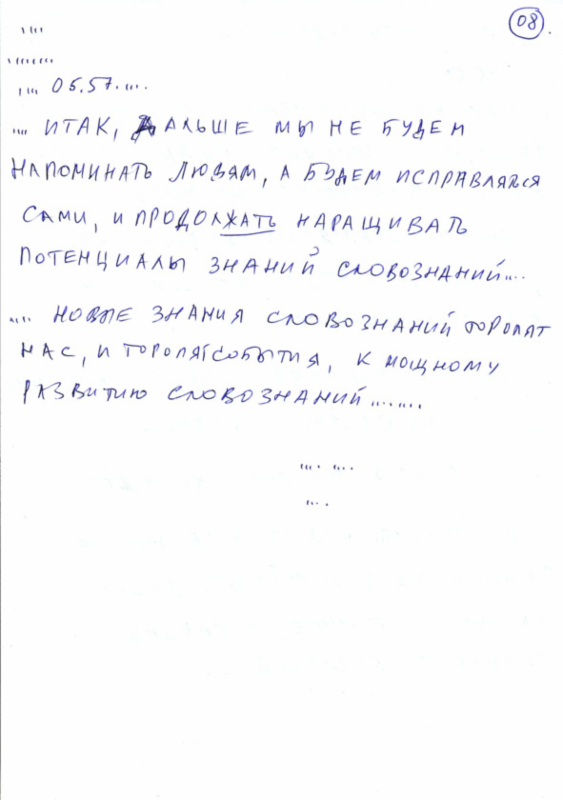 08.
....
.......
.... 05.57.....
.... ИТАК, ДАЛЬШЕ МЫ НЕ БУДЕМ
НАПОМИНАТЬ ЛЮДЯМ, А БУДЕМ ИСПРАВЛЯТСЯ
САМИ, И ПРОДОЛЖАТЬ НАРАЩИВАТЬ
ПОТЕНЦИАЛЫ ЗНАНИЙ СЛОВОЗНАНИЙ....
.... НОВЫЕ ЗНАНИЯ СЛОВОЗНАНИЙ ТОРОПЯТ
НАС, И ТОРОПЯТ СОБЫТИЯ, К МОЩНОМУ
РАЗВИТИЮ СЛОВОЗНАНИЙ.......
.... ....
....